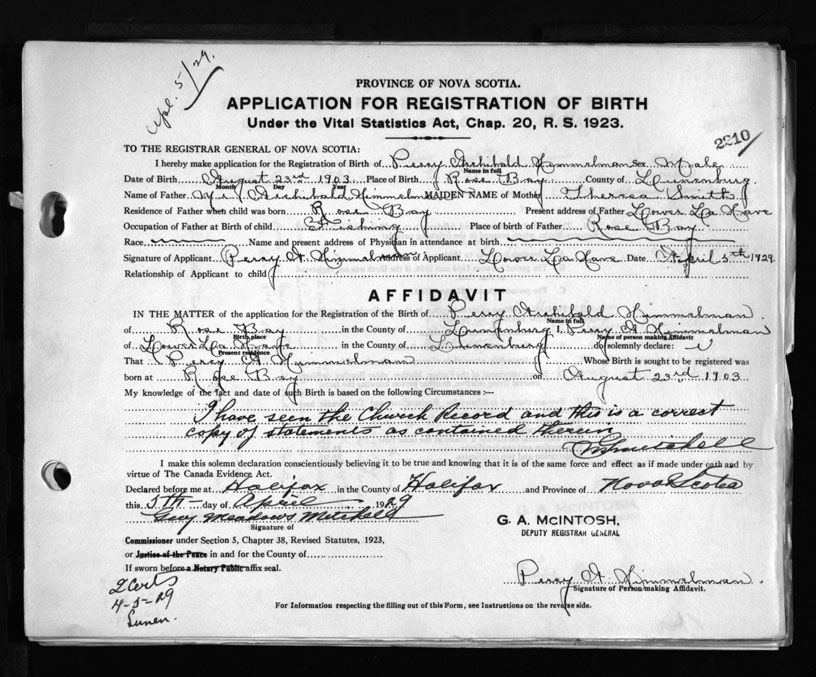 Apl. 5/29.
PROVINCE OF NOVA SCOTIA.
APPLICATION FOR REGISTRATION OF BIRTH
Under the Vital Statistics Act, Chap. 20, R. S. 1923.
2210
TO THE REGISTRAR GENERAL OF NOVA SCOTIA:
I hereby make application for the Registration of Birth of Percy Archibald Himmelman Sex Male
Name in full
Date of Birth August 23rd 1903 Place of Birth Rose Bay County of Lunenburg
Month Day Year
Name of Father Archibald Himmelman MAIDEN NAME of Mother Theresa Smith
Residence of Father when child was born Rose Bay Present address of Father Lower La Have
Occupation of Father at Birth of child Fishing Place of birth of Father Rose Bay
Race Name and present address of Physician in attendance at birth
Signature of Applicant Percy A Himmelman Address of Applicant Lower La Have Date April 5th 1929.
Relationship of Applicant to child
AFFIDAVIT
IN THE MATTER of the application for the Registration of the Birth of Percy Archibald Himmelman
Name in full
of Rose Bay in the County of Lunenburg I, Percy A Himmelman
Birth place Name of person making Affidavit
of Lower La Have in the County of Lunenburg do solemnly declare:
Present residence
That Percy A Himmelman Whose Birth is sought to be registered was
born at Rose Bay on August 23rd 1903
My knowledge of the fact and date of such Birth is based on the following Circumstances :—
I have seen the Church Record and this is a correct
copy of statements as contained therein
GMmitchell
I make this solemn declaration conscientiously believing it to be true and knowing that it is of the same force and effect as if made under oath and by
virtue of The Canada Evidence Act.
Declared before me at Halifax in the County of Halifax and Province of Nova Scotia
this 5th day of April 1929
Guy Meadows Mitchell
Signature of
G. A. McINTOSH,
DEPUTY REGISTRAR GENERAL
Commissioner under Section 5, Chapter 38, Revised Statutes, 1923,
or Justice of the Peace in and for the County of
If sworn before a Notary Public affix seal.
Percy A Himmelman.
Signature of Person making Affidavit.
2 Certs
4-5-29
Lunen.
For Information respecting the filling out of this Form, see Instructions on the reverse side.